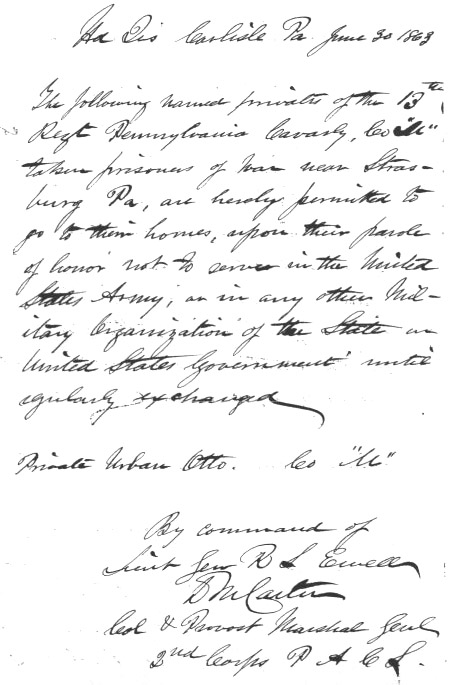 Hd Qrs Carlisle Pa. June 30 1863
The following named privates of the 13th
Regt Pennsylvania Cavarly, Co "M"
taken prisoners of war near Stras-
burg Pa, are hereby permitted to
go to their homes, upon their parole
of honor not to serve in the United
States Army, or in any other Mil-
itary Organization of the State or
United States Government until
regularly exchanged
Private Urban Otto. Co "M"
By command of
Lieut Gen R S Ewell
D M Carter
Col & Provost Marshal Genl
2nd Corps P A C S.